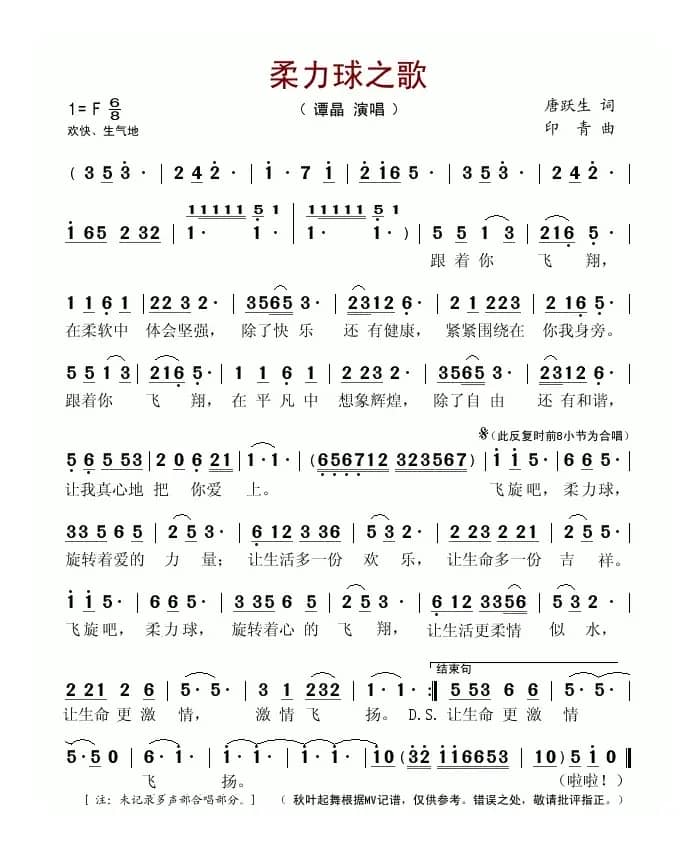 柔力球之歌
1= F 6/8
( 谭晶 演唱 )
唐跃生 词
欢快、生气地
印 青 曲
( 3 5 3 · | 2 4 2 · | 1 · 7 1 | 2 165 · | 3 5 3 · | 2 4 2 · |
1 65 2 32 | 11111 5 1 | 11111 5 1
1 · 1 · | 1 · 1 · ) | 5 5 1 3 | 216 5 · |
跟着你 飞 翔,
1 1 6 1 | 22 3 2 · | 3565 3 · | 2312 6 · | 2 1 223 | 2 16 5 · |
在柔软中 体会坚强, 除了快 乐 还 有健康, 紧紧围绕在 你我身旁。
5 5 1 3 | 216 5 · | 1 1 6 1 | 22 3 2 · | 3565 3 · | 2312 6 · |
跟着你 飞 翔, 在 平 凡 中 想象辉煌, 除了自 由 还 有和谐,
𝄋(此反复时前8小节为合唱)
5 6 5 53 | 2 0 6 2 | 1 · 1 · | (656712 323567) | 1 1 5 · | 6 6 5 · |
让我真心地 把 你爱 上。 飞旋吧, 柔力球,
33 5 65 | 2 5 3 · | 6 12 3 36 | 5 3 2 · | 2 23 2 21 | 2 5 5 · |
旋转着爱的 力 量; 让生活多一份 欢 乐, 让生命多一份 吉 祥。
1 1 5 · | 6 6 5 · | 3 35 6 1 | 2 5 3 · | 6 12 3356 | 5 3 2 · |
飞旋吧, 柔力球, 旋转着心 的 飞 翔, 让生活更柔情 似 水,
结束句
2 21 2 6 | 5 · 5 · | 3 1 232 | 1 · 1 · :‖ 5 53 6 6 | 5 · 5 · |
让生命 更 激 情, 激 情 飞 扬。 D.S. 让生命 更 激 情
5 · 5 0 | 6 · 1 · | 1 · 1 · | 1 · 1 · | 10(32 116653 | 10) 5 1 0 ‖
飞 扬。 (啦啦!)
[ 注: 未记录多声部合唱部分。] ( 秋叶起舞根据MV记谱,仅供参考。错误之处,敬请批评指正。)